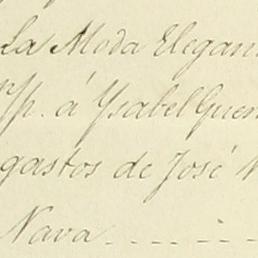 La Moda Elegan
Yp. á Ysabel Guer
gastos de José N
Nava